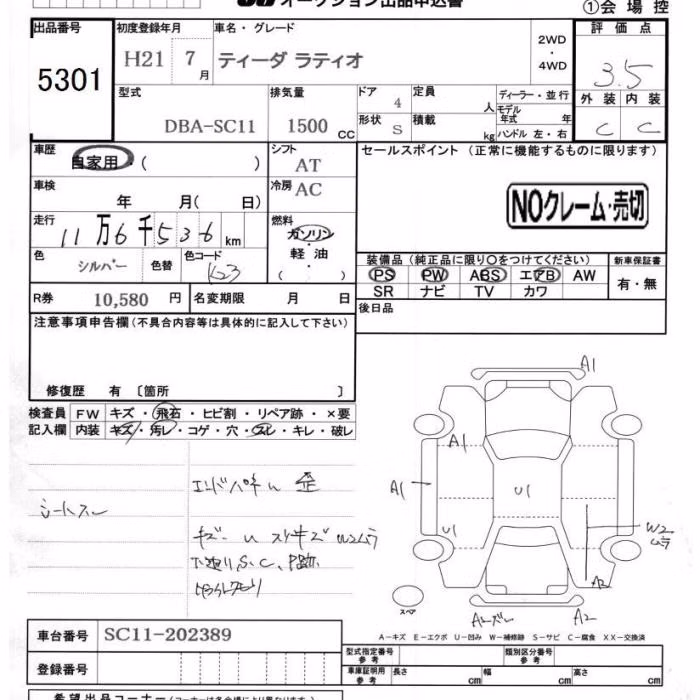 オークション出品申込書
①会場控
出品番号
5301
初度登録年月
H21 7月
車名・グレード
ティーダ ラティオ
2WD
・
4WD
評価点
3.5
外装 内装
C C
型式
DBA-SC11
排気量
1500 CC
ドア
4
形状
S
定員
人
積載
kg
ディーラー・並行
モデル年式 年
ハンドル 左・右
車歴
自家用・( )
シフト
AT
車検
年 月( 日)
冷房
AC
走行
11万6千536km
燃料
ガソリン
・
軽油
( )
色
シルバー
色替
色コード
K23
R券 10,580 円
名変期限 月 日
セールスポイント (正常に機能するものに限ります)
NOクレーム・売切
装備品 (純正品に限り○をつけてください)
PS PW ABS エアB AW
SR ナビ TV カワ
新車保証書
有・無
後日品
注意事項申告欄(不具合内容等は具体的に記入して下さい)
修復歴 有 〔箇所 〕
検査員記入欄
FW キズ・飛石・ヒビ割・リペア跡・×要
内装 キズ・汚レ・コゲ・穴・スレ・キレ・破レ
シートスレ
エンドパネル 歪
A1
A1
A1
U1
U1
W2
ムラ
A2
スペア
A-キズ E-エクボ U-凹み W-補修跡 S-サビ C-腐食 XX-交換済
車台番号
SC11-202389
登録番号
型式指定番号
参考
類別区分番号
参考
車庫証明用
参考
長さ cm
幅 cm
高さ cm
希望出品コーナー